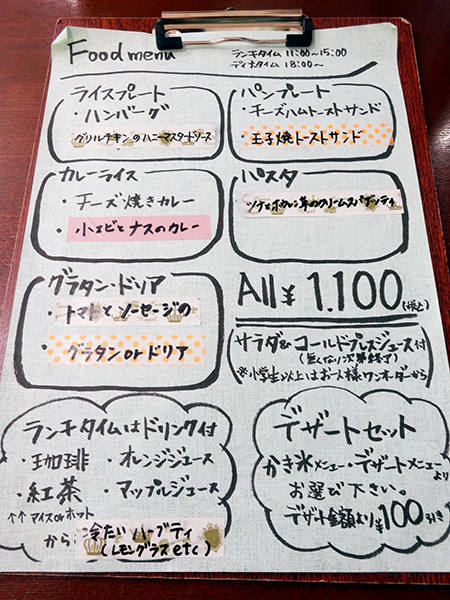 Food menu
ランチタイム 11:00〜15:00
ディナタイム 18:00〜
ライスプレート
・ハンバーグ
グリルチキンのハニーマスタードソース
パンプレート
・チーズハムトーストサンド
・玉子焼トーストサンド
カレーライス
・チーズ焼きカレー
・小エビとナスのカレー
パスタ
ツナとホウレン草のクリームスパゲッティ
グラタン・ドリア
・トマトとソーセージの
・グラタン or ドリア
All ¥1.100(税込)
サラダ&コールドプレスジュース付
(無くなり次第終了)
※小学生以上はお一人様ワンオーダーから
ランチタイムはドリンク付
・珈琲 ・オレンジジュース
・紅茶 ・マップルジュース
↑↑アイス or ホット
から
冷たいハーブティ
(レモングラスetc)
デザートセット
かき氷メニュー・デザートメニュー
より
お選び下さい。
デザート金額より¥100引き